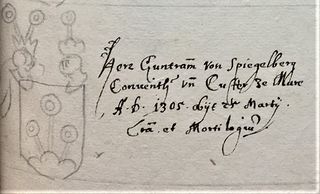 Herr Guntram von Spiegelberg
Conventh vn Custer ze Mure
A. D. 1305. obijt 28 Martij.
Cra. et Mortilogiu